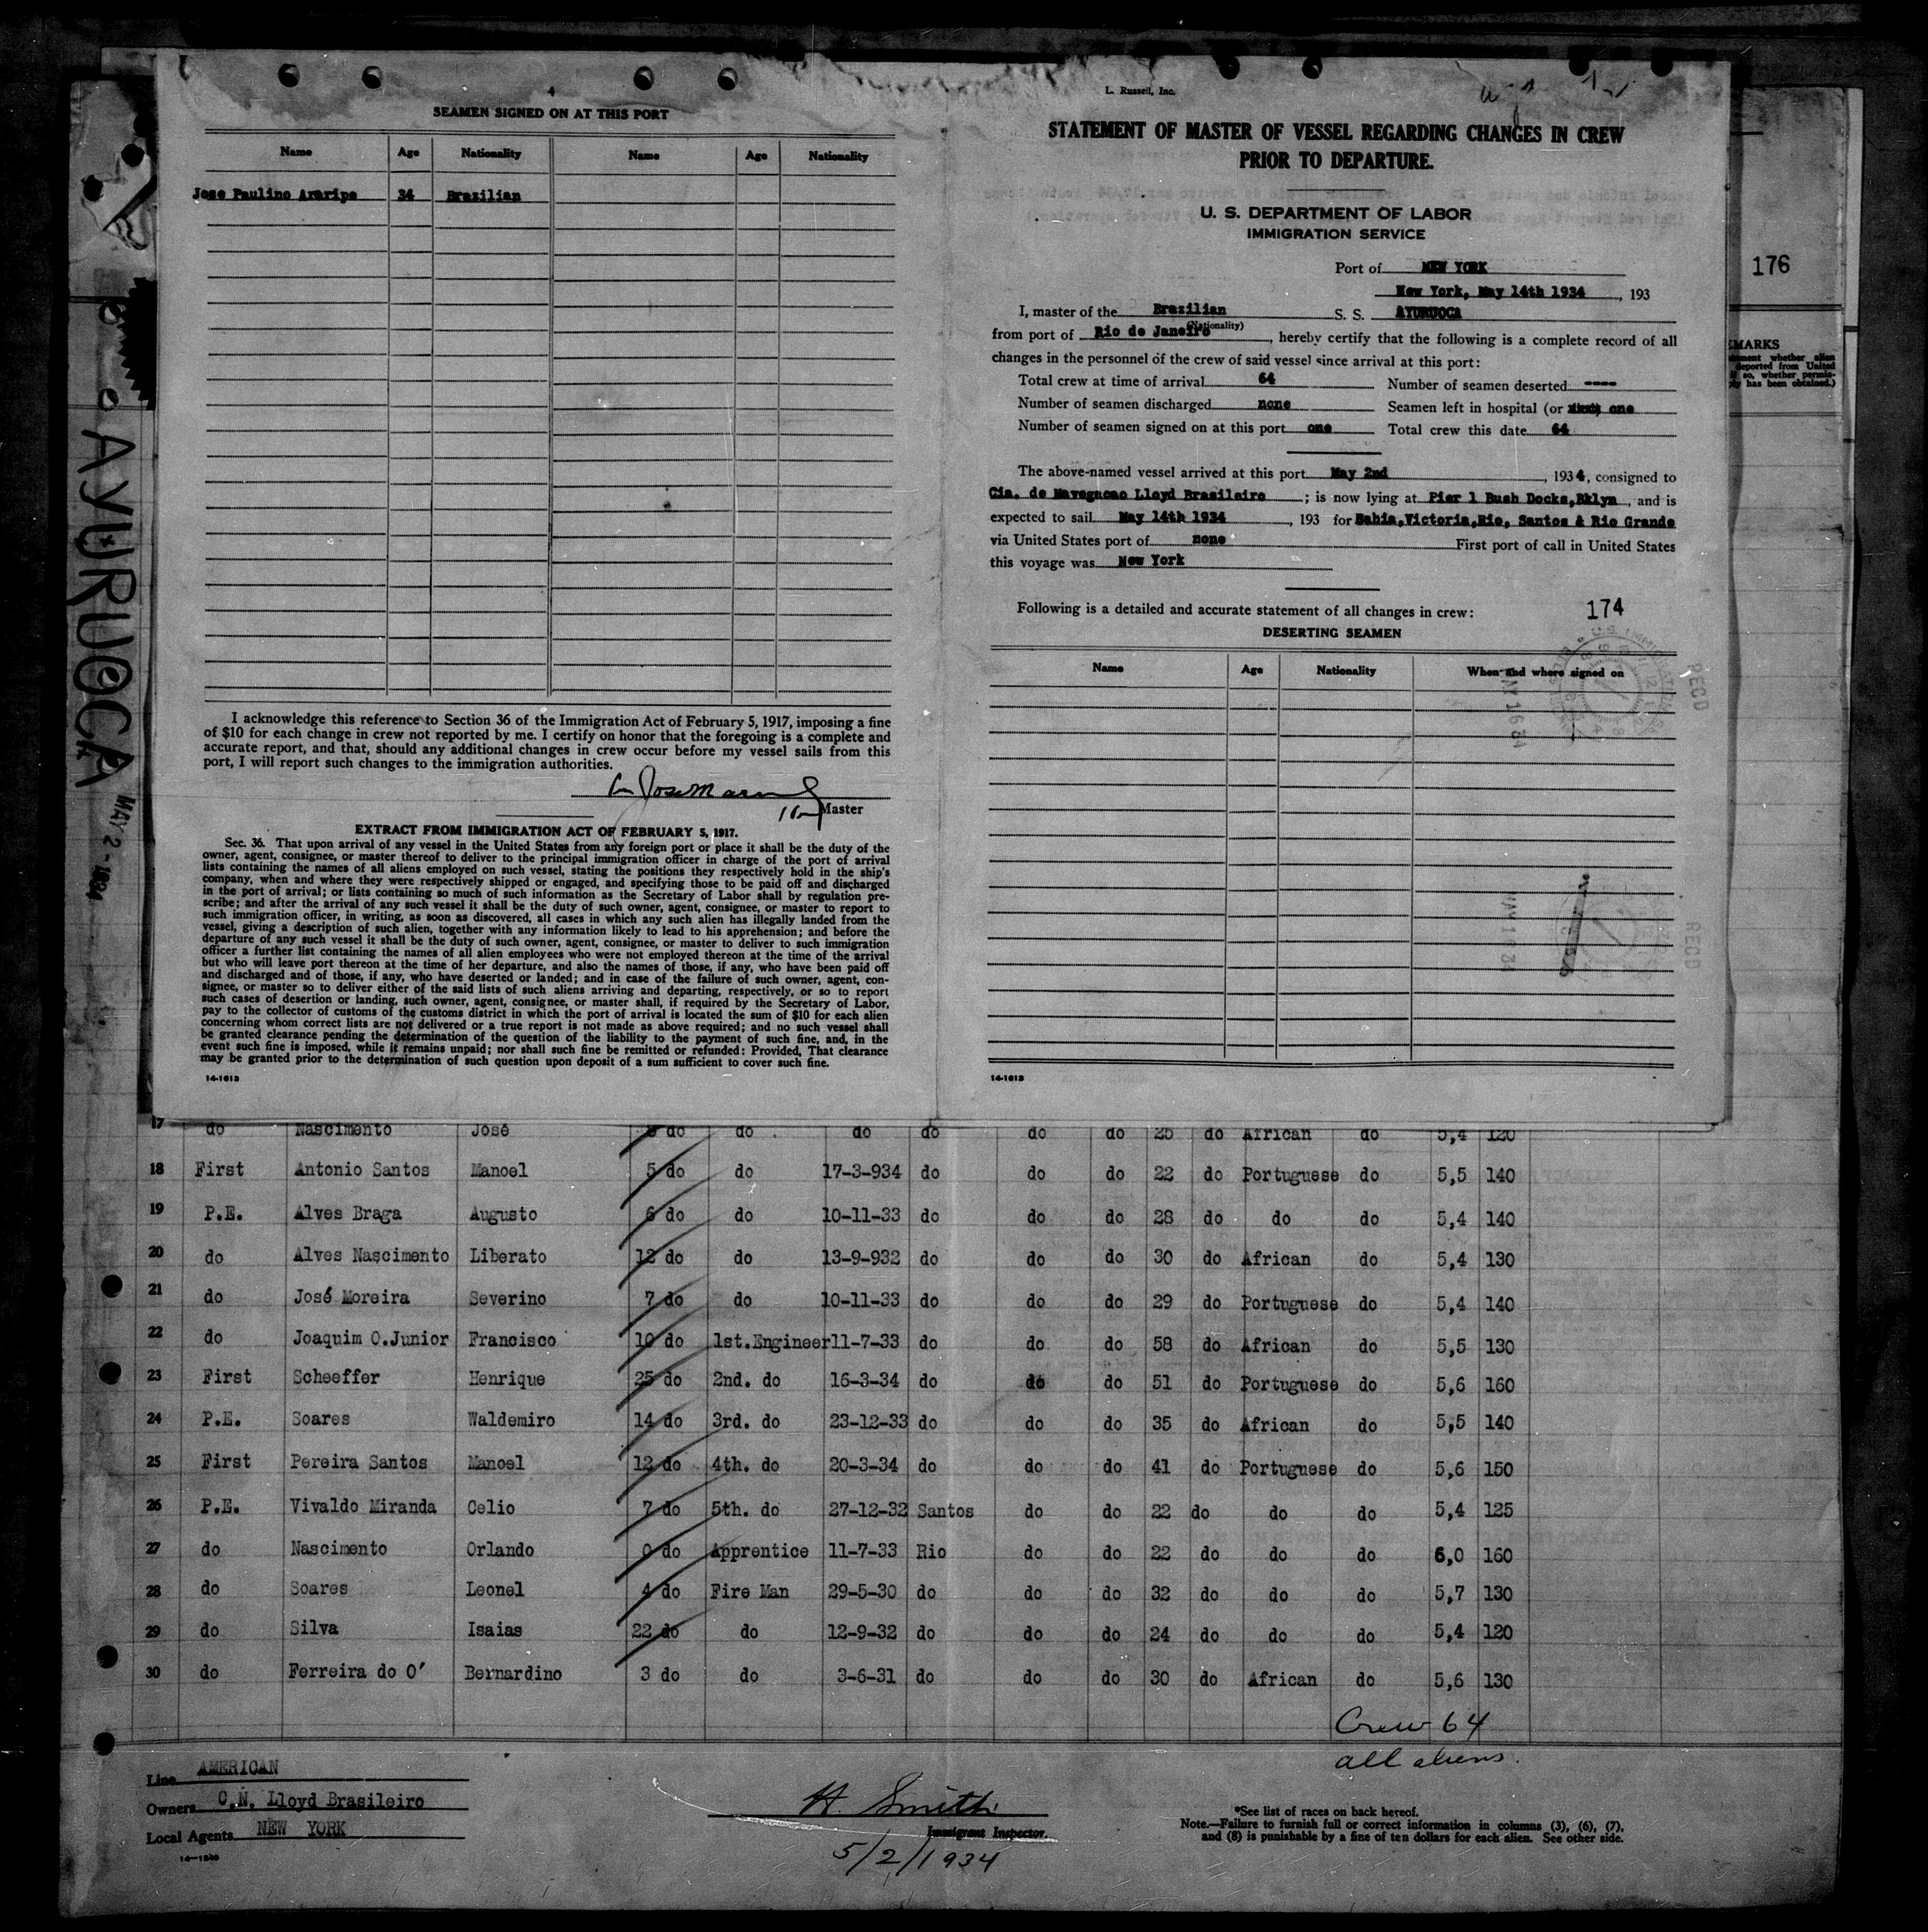 SEAMEN SIGNED ON AT THIS PORT
Name Age Nationality Name Age Nationality
Jose Paulino Araripe 34 Brazilian
I acknowledge this reference to Section 36 of the Immigration Act of February 5, 1917, imposing a fine
of $10 for each change in crew not reported by me. I certify on honor that the foregoing is a complete and
accurate report, and that, should any additional changes in crew occur before my vessel sails from this
port, I will report such changes to the immigration authorities.
Master
EXTRACT FROM IMMIGRATION ACT OF FEBRUARY 5, 1917.
Sec. 36. That upon arrival of any vessel in the United States from any foreign port or place it shall be the duty of the
owner, agent, consignee, or master thereof to deliver to the principal immigration officer in charge of the port of arrival
lists containing the names of all aliens employed on such vessel, stating the positions they respectively hold in the ship's
company, when and where they were respectively shipped or engaged, and specifying those to be paid off and discharged
in the port of arrival; or lists containing so much of such information as the Secretary of Labor shall by regulation pre-
scribe; and after the arrival of any such vessel it shall be the duty of such owner, agent, consignee, or master to report to
such immigration officer, in writing, as soon as discovered, all cases in which any such alien has illegally landed from the
vessel, giving a description of such alien, together with any information likely to lead to his apprehension; and before the
departure of any such vessel it shall be the duty of such owner, agent, consignee, or master to deliver to such immigration
officer a further list containing the names of all alien employees who were not employed thereon at the time of the arrival
but who will leave port thereon at the time of her departure, and also the names of those, if any, who have been paid off
and discharged and of those, if any, who have deserted or landed; and in case of the failure of such owner, agent, con-
signee, or master so to deliver either of the said lists of such aliens arriving and departing, respectively, or so to report
such cases of desertion or landing, such owner, agent, consignee, or master shall, if required by the Secretary of Labor,
pay to the collector of customs of the customs district in which the port of arrival is located the sum of $10 for each alien
concerning whom correct lists are not delivered or a true report is not made as above required; and no such vessel shall
be granted clearance pending the determination of the question of the liability to the payment of such fine, and, in the
event such fine is imposed, while it remains unpaid; nor shall such fine be remitted or refunded: Provided, That clearance
may be granted prior to the determination of such question upon deposit of a sum sufficient to cover such fine.
14-1613
L. Russell, Inc.
STATEMENT OF MASTER OF VESSEL REGARDING CHANGES IN CREW
PRIOR TO DEPARTURE.
U. S. DEPARTMENT OF LABOR
IMMIGRATION SERVICE
Port of NEW YORK
New York, May 14th 1934, 193
I, master of the Brazilian S. S. AYURUOCA
(Nationality)
from port of Rio de Janeiro, hereby certify that the following is a complete record of all
changes in the personnel of the crew of said vessel since arrival at this port:
Total crew at time of arrival 64 Number of seamen deserted ----
Number of seamen discharged none Seamen left in hospital (or one
Number of seamen signed on at this port one Total crew this date 64
The above-named vessel arrived at this port May 2nd, 1934, consigned to
Cia. de Navegacao Lloyd Brasileiro; is now lying at Pier 1 Bush Docks,Bklyn, and is
expected to sail May 14th 1934, 193 for Bahia,Victoria,Rio, Santos & Rio Grande
via United States port of none First port of call in United States
this voyage was New York
Following is a detailed and accurate statement of all changes in crew: 174
DESERTING SEAMEN
Name Age Nationality When and where signed on
RECD
MAY 16 34
RECD
MAY 16 34
14-1613
176
AYURUOCA
MAY 2 - 1934
17 do Nascimento José do do do do do do 25 do African do 5,4 120
18 First Antonio Santos Manoel 5 do do 17-3-934 do do do 22 do Portuguese do 5,5 140
19 P.E. Alves Braga Augusto 6 do do 10-11-33 do do do 28 do do do 5,4 140
20 do Alves Nascimento Liberato 12 do do 13-9-932 do do do 30 do African do 5,4 130
21 do José Moreira Severino 7 do do 10-11-33 do do do 29 do Portuguese do 5,4 140
22 do Joaquim O.Junior Francisco 10 do 1st.Engineer 11-7-33 do do do 58 do African do 5,5 130
23 First Scheeffer Henrique 25 do 2nd. do 16-3-34 do do do 51 do Portuguese do 5,6 160
24 P.E. Soares Waldemiro 14 do 3rd. do 23-12-33 do do do 35 do African do 5,5 140
25 First Pereira Santos Manoel 12 do 4th. do 20-3-34 do do do 41 do Portuguese do 5,6 150
26 P.E. Vivaldo Miranda Celio 7 do 5th. do 27-12-32 Santos do do 22 do do do 5,4 125
27 do Nascimento Orlando 0 do Apprentice 11-7-33 Rio do do 22 do do do 6,0 160
28 do Soares Leonel 4 do Fire Man 29-5-30 do do do 32 do do do 5,7 130
29 do Silva Isaias 22 do do 12-9-32 do do do 24 do do do 5,4 120
30 do Ferreira do O' Bernardino 3 do do 3-6-31 do do do 30 do African do 5,6 130
Crew 64
all aliens.
Line AMERICAN
Owners C.N. Lloyd Brasileiro
Local Agents NEW YORK
H. Smith
Immigrant Inspector.
5/2/1934
*See list of races on back hereof.
Note.—Failure to furnish full or correct information in columns (3), (6), (7),
and (8) is punishable by a fine of ten dollars for each alien. See other side.